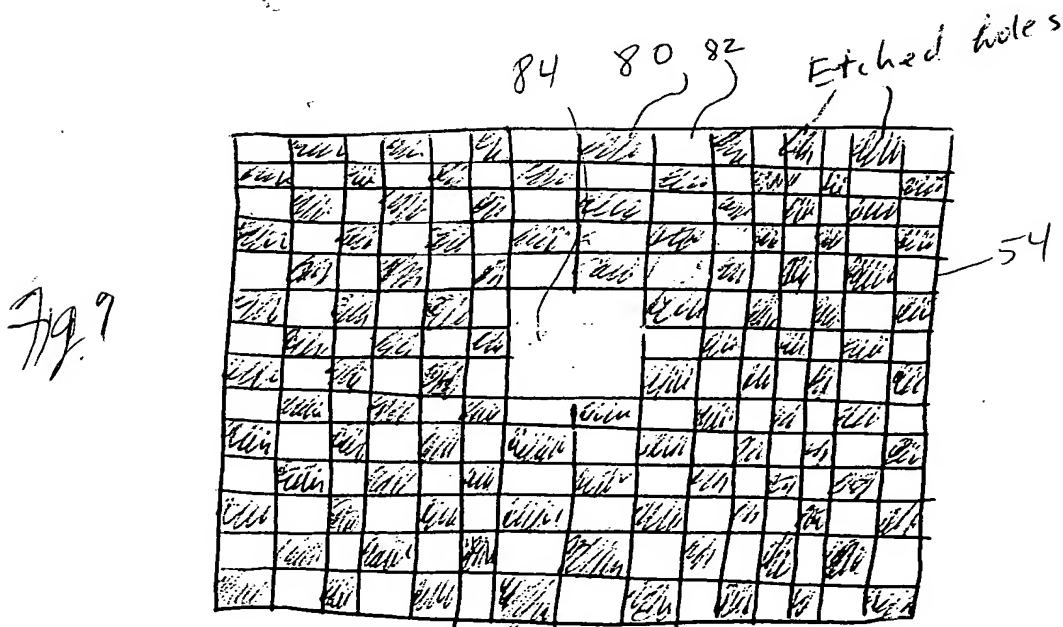 84 80 82 Etched holes
54
Fig. 9